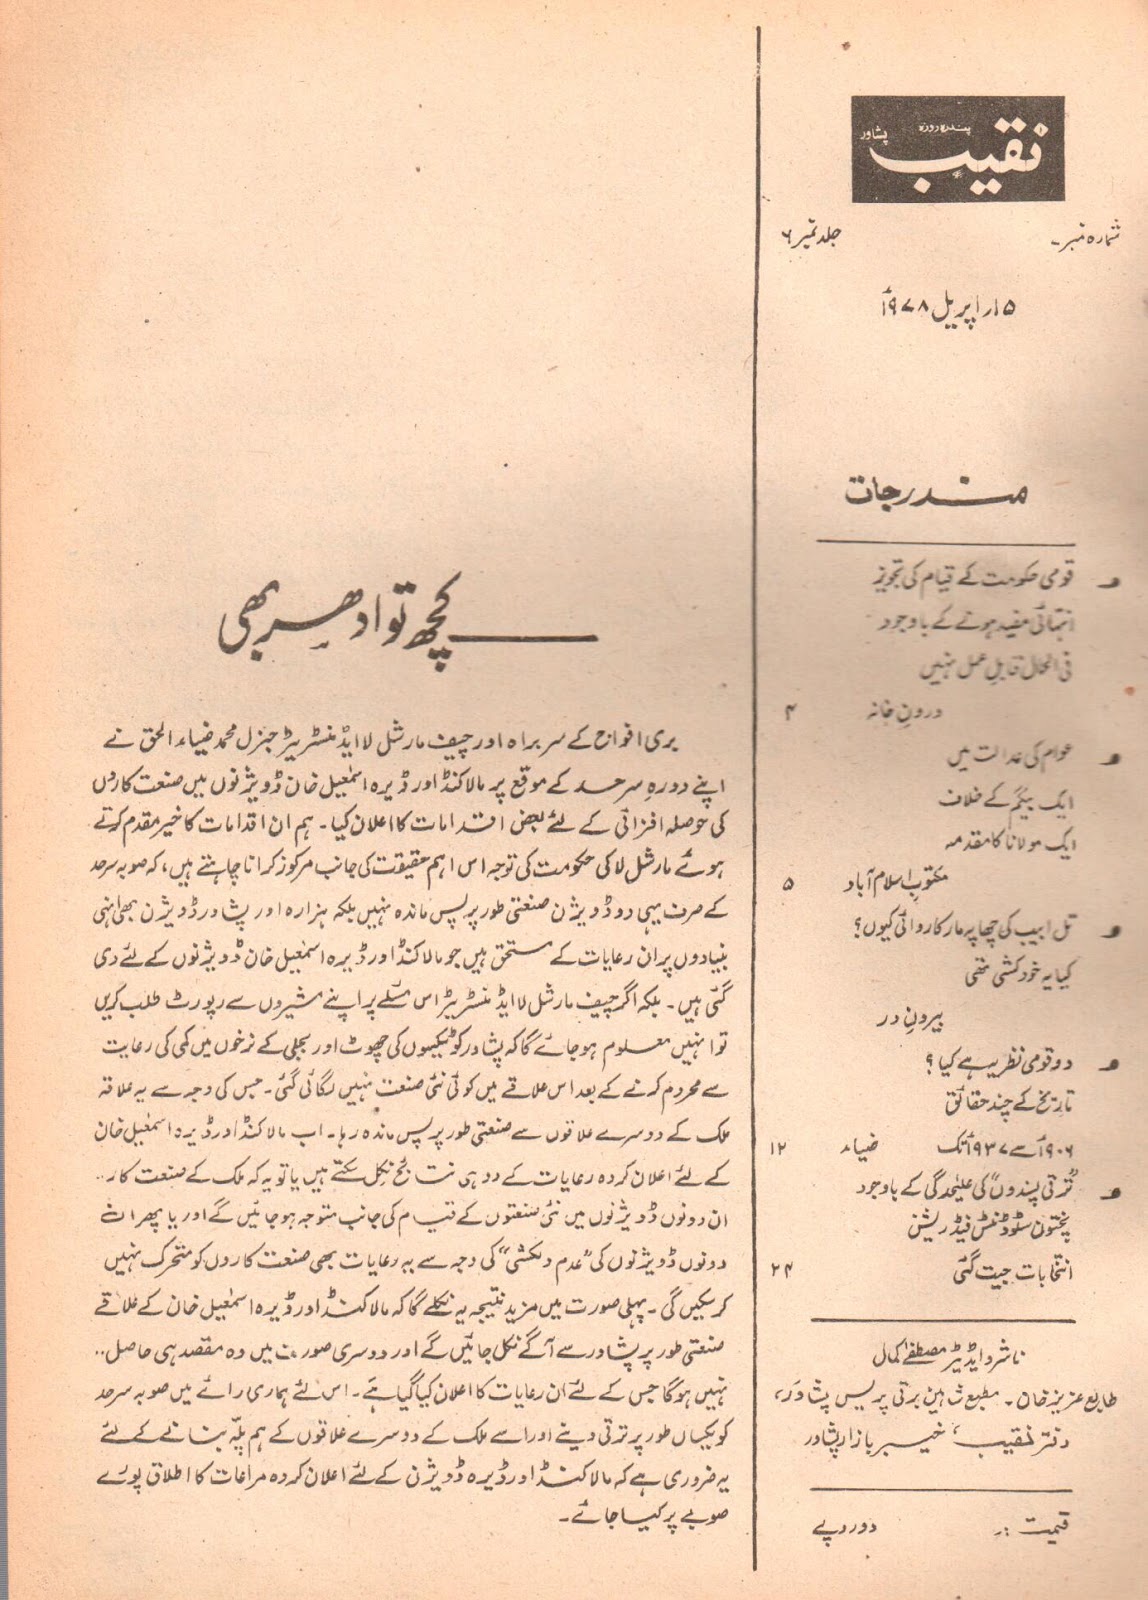 پندرہ روزہ
نقیب
پشاور
شمارہ نمبر ۷
جلد نمبر ۶
۱۵؍ اپریل ۱۹۷۸ء
مندرجات
قومی حکومت کے قیام کی تجویز
انتہائی مفید ہونے کے باوجود
فی الحال قابلِ عمل نہیں
درونِ خانہ ۴
عوام کی عدالت میں
ایک بیگم کے خلاف
ایک مولانا کا مقدمہ
مکتوبِ اسلام آباد ۵
تل ابیب کی چھاپہ مار کاروائی کیوں؟
کیا یہ خودکشی تھی
بیرونِ در
دو قومی نظریہ ہے کیا؟
تاریخ کے چند حقائق
۱۹۰۶ء سے ۱۹۳۷ء تک ضیاء ۱۲
"ترقی پسندوں" کی علیٰحدگی کے باوجود
پختون سٹوڈنٹس فیڈریشن
انتخابات جیت گئی ۲۴
ناشر و ایڈیٹر مصطفےٰ کمال
طابع عزیز خان ۔ مطبع شاہین برقی پریس پشاور،
دفتر نقیب، خیبر بازار پشاور
قیمت :۔ دو روپے
کچھ تو ادھر بھی
بری افواج کے سربراہ اور چیف مارشل لا ایڈمنسٹریٹر جنرل محمد ضیاء الحق نے
اپنے دورہِ سرحد کے موقع پر مالاکنڈ اور ڈیرہ اسمٰعیل خان ڈویژنوں میں صنعت کاروں
کی حوصلہ افزائی کے لئے بعض اقدامات کا اعلان کیا ۔ ہم ان اقدامات کا خیر مقدم کرتے
ہوئے مارشل لا کی حکومت کی توجہ اس اہم حقیقت کی جانب مرکوز کرانا چاہتے ہیں، کہ صوبہ سرحد
کے صرف یہی دو ڈویژن صنعتی طور پر پس ماندہ نہیں بلکہ ہزارہ اور پشاور ڈویژن بھی انہی
بنیادوں پر ان رعایات کے مستحق ہیں جو مالاکنڈ اور ڈیرہ اسمٰعیل خان ڈویژنوں کے لئے دی
گئی ہیں ۔ بلکہ اگر چیف مارشل لا ایڈمنسٹریٹر اس مسئلے پر اپنے مشیروں سے رپورٹ طلب کریں
تو انہیں معلوم ہو جائے گا کہ پشاور کو ٹیکسوں کی چھوٹ اور بجلی کے نرخوں میں کمی کی رعایت
سے محروم کرنے کے بعد اس علاقے میں کوئی نئی صنعت نہیں لگائی گئی ۔ جس کی وجہ سے یہ علاقہ
ملک کے دوسرے علاقوں سے صنعتی طور پر پس ماندہ رہا ۔ اب مالاکنڈ اور ڈیرہ اسمٰعیل خان
کے لئے اعلان کردہ رعایات کے دو ہی نتائج نکل سکتے ہیں یا تو یہ کہ ملک کے صنعت کار ..
ان دونوں ڈویژنوں میں نئی صنعتوں کے قیام کی جانب متوجہ ہو جائیں گے اور یا پھر ان
دونوں ڈویژنوں کی "عدم دلکشی" کی وجہ سے یہ رعایات بھی صنعت کاروں کو متحرک نہیں
کر سکیں گی ۔ پہلی صورت میں مزید نتیجہ یہ نکلے گا کہ مالاکنڈ اور ڈیرہ اسمٰعیل خان کے علاقے
صنعتی طور پر پشاور سے آگے نکل جائیں گے اور دوسری صورت میں وہ مقصد ہی حاصل ..
نہیں ہوگا جس کے لئے ان رعایات کا اعلان کیا گیا ہے ۔ اس لئے ہماری رائے میں صوبہ سرحد
کو یکساں طور پر ترقی دینے اور اسے ملک کے دوسرے علاقوں کے ہم پلّہ بنانے کے لئے
یہ ضروری ہے کہ مالاکنڈ اور ڈیرہ ڈویژن کے لئے اعلان کردہ مراعات کا اطلاق پورے
صوبے پر کیا جائے ۔